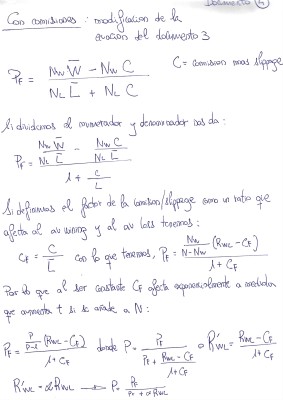 Documento 4
Con comisiones: modificacion de la
ecuación del documento 3
P_F = (N_W W̄ - N_W C) / (N_L L̄ + N_L C)   C = comision mas slippage
Si dividimos el numerador y denominador nos da:
P_F = (N_W W̄ / N_L L̄ - N_W C / N_L L̄) / (1 + C/L̄)
Si definimos el factor de la comision/slippage como un ratio que
afecta al av wining y al av loss tenemos:
C_F = C / L̄ con lo que tenemos, P_F = (N_W / (N - N_W) (R_WL - C_F)) / (1 + C_F)
Por lo que al ser constante C_F afecta exponencialmente a medida
que aumenta t si se añade a N:
P_F = (P/(P-1) (R_WL - C_F)) / (1 + C_F) donde P = P_F / (P_F + (R_WL - C_F)/(1 + C_F)) o R'_WL = (R_WL - C_F) / (1 + C_F)
R'_WL = α R_WL → P = P_F / (P_F + α R_WL)